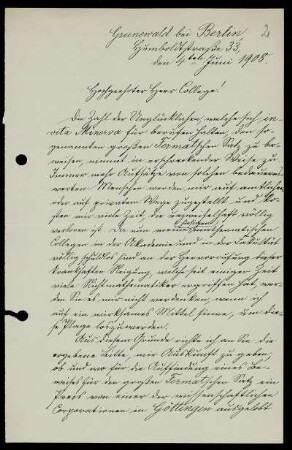 Grunewald bei Berlin
Humboldtstraße 33,
den 4ten Juni 1908.
Hochgeehrter Herr College!
Die Zahl der Unglücklichen, welche sich in-
vita Minerva für berufen halten, den so-
genannten großen Fermatschen Satz zu be-
weisen, nimmt in erschreckender Weise zu.
Immer mehr Aufsätze von solchen bedauerns-
werten Menschen werden mir auf amtlichem
oder auf privatem Wege zugestellt und ko-
sten mir viele Zeit, die zweifelhaft völlig
verloren ist. Da nun meine hiesigen mathematischen
Collegen in der Akademie und in der Fakultät
völlig schuldlos sind an der Hervorrufung dieser
krankhaften Neigung, welche seit einiger Zeit
viele Nichtmathematiker ergriffen hat, wer-
den Sie es mir nicht verdenken, wenn ich
auf ein wirksames Mittel sinne, um die-
se Plage loszuwerden.
Aus diesem Grunde richte ich an Sie die
ergebene Bitte, mir Auskunft zu geben,
ob und von wem für die Auffindung eines Be-
weises für den großen Fermatschen Satz ein
Preis von einer der wissenschaftlichen
Corporationen in Göttingen ausgelobt